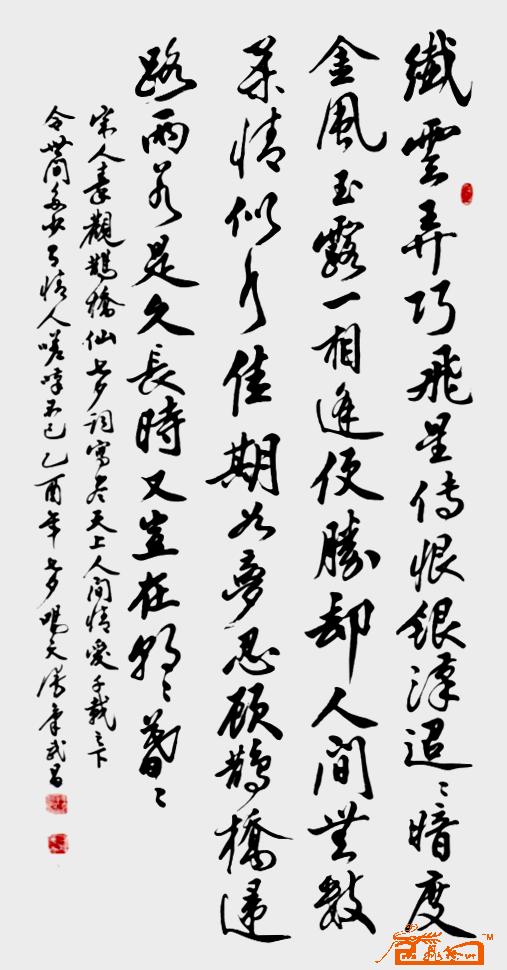 纖雲弄巧飛星傳恨銀漢迢〻暗度
金風玉露一相逢便勝却人間無數
柔情似水佳期如夢忍顧鵲橋歸
路兩若是久長時又豈在朝〻暮〻
宋人秦觀鵲橋仙七夕詞寫盡天上人間情愛千載之下
令世間多少有情人嗟嘆不已乙酉年七夕